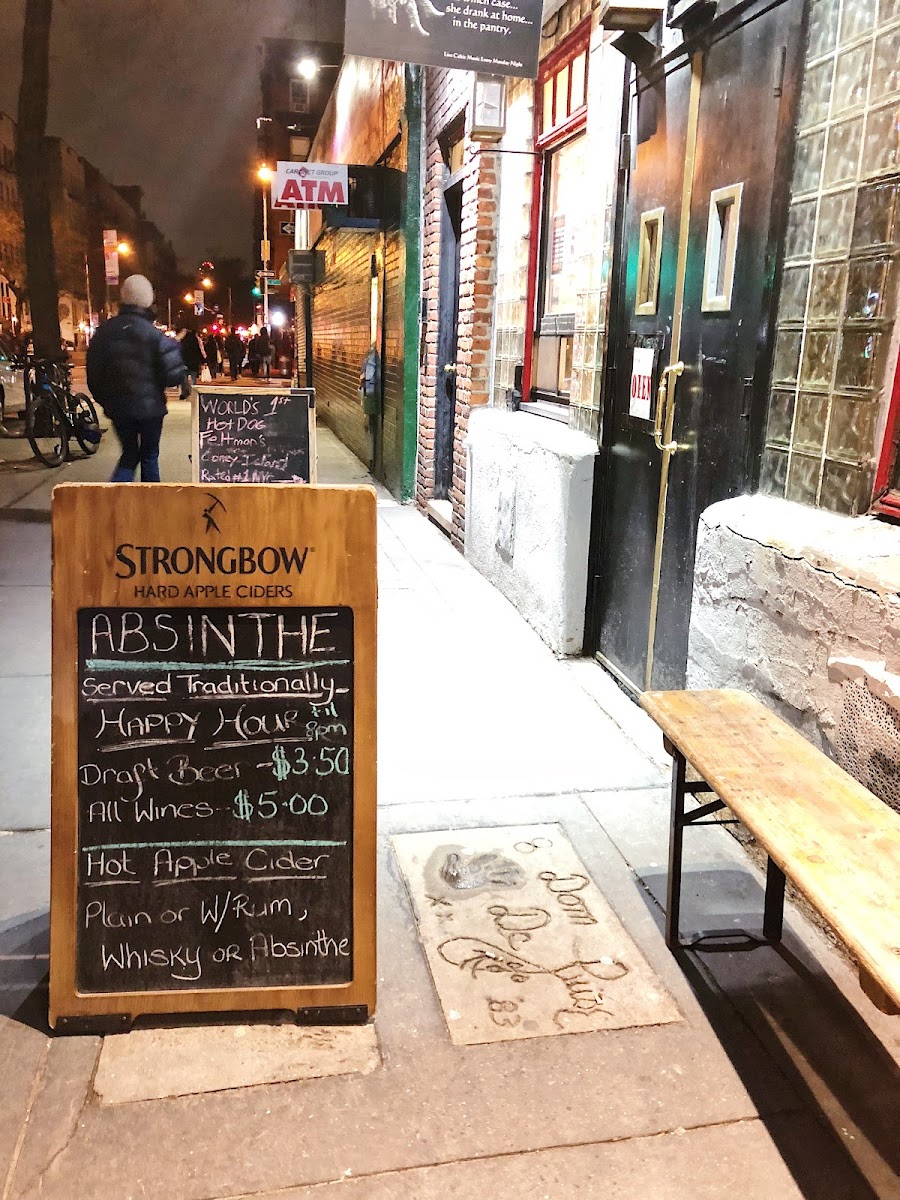 which case...
she drank at home...
in the pantry.
Live Celtic Music Every Monday Night
CARDNET GROUP
ATM
WORLD'S 1st
HOT DOG
Feltman's
Coney Island
Rated #1 NY
OPEN
STRONGBOW
HARD APPLE CIDERS
ABSINTHE
Served Traditionally
HAPPY HOUR till
8pm
Draft Beer - $3.50
All Wines -- $5.00
Hot Apple Cider
Plain or W/Rum,
Whisky or Absinthe
8
Dom
De
Luise
'83